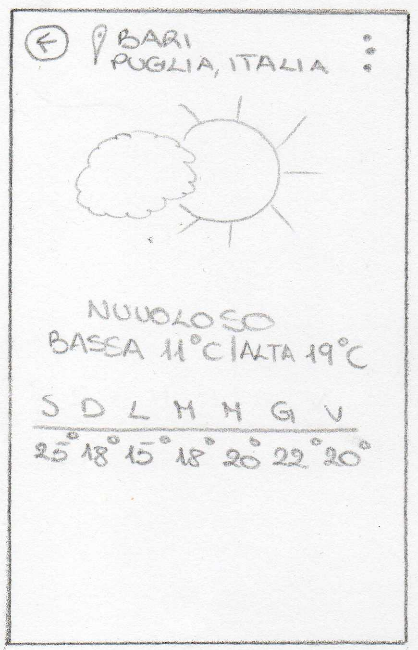 BARI
PUGLIA, ITALIA
NUVOLOSO
BASSA 11°C | ALTA 19°C
S D L M M G V
25° 18° 15° 18° 20° 22° 20°